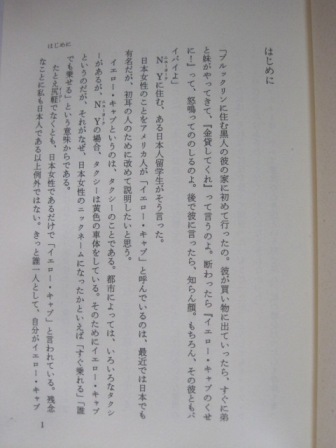 はじめに
「ブルックリンに住む黒人の彼の家に初めて行ったの。彼が買い物に出ていったら、すぐに弟
と妹がやってきて、『金貸してくれ』って言うのよ。断わったら『イエロー・キャブのくせ
に！』って、怒鳴ってののしるのよ。後で彼に言ったら、知らん顔。もちろん、その彼ともバ
イバイよ」
N・Yに住む、ある日本人留学生がそう言った。
日本女性のことをアメリカ人が「イエロー・キャブ」と呼んでいるのは、最近では日本でも
有名だが、初耳の人のために改めて説明したいと思う。
イエロー・キャブというのは、タクシーのことである。都市によっては、いろいろなタクシ
ーがあるが、N・Yの場合、タクシーは黄色の車体をしている。そのためにイエロー・キャブ
というのだが、それがなぜ、日本女性のニックネームになったかといえば「すぐ乗れる」「誰
でも乗せる」という意味からである。
たとえ尻軽でなくとも、日本女性であるだけで「イエロー・キャブ」と言われている。残念
なことに私も日本人である以上例外ではない。きっと誰一人として、自分がイエロー・キャブ
はじめに
1